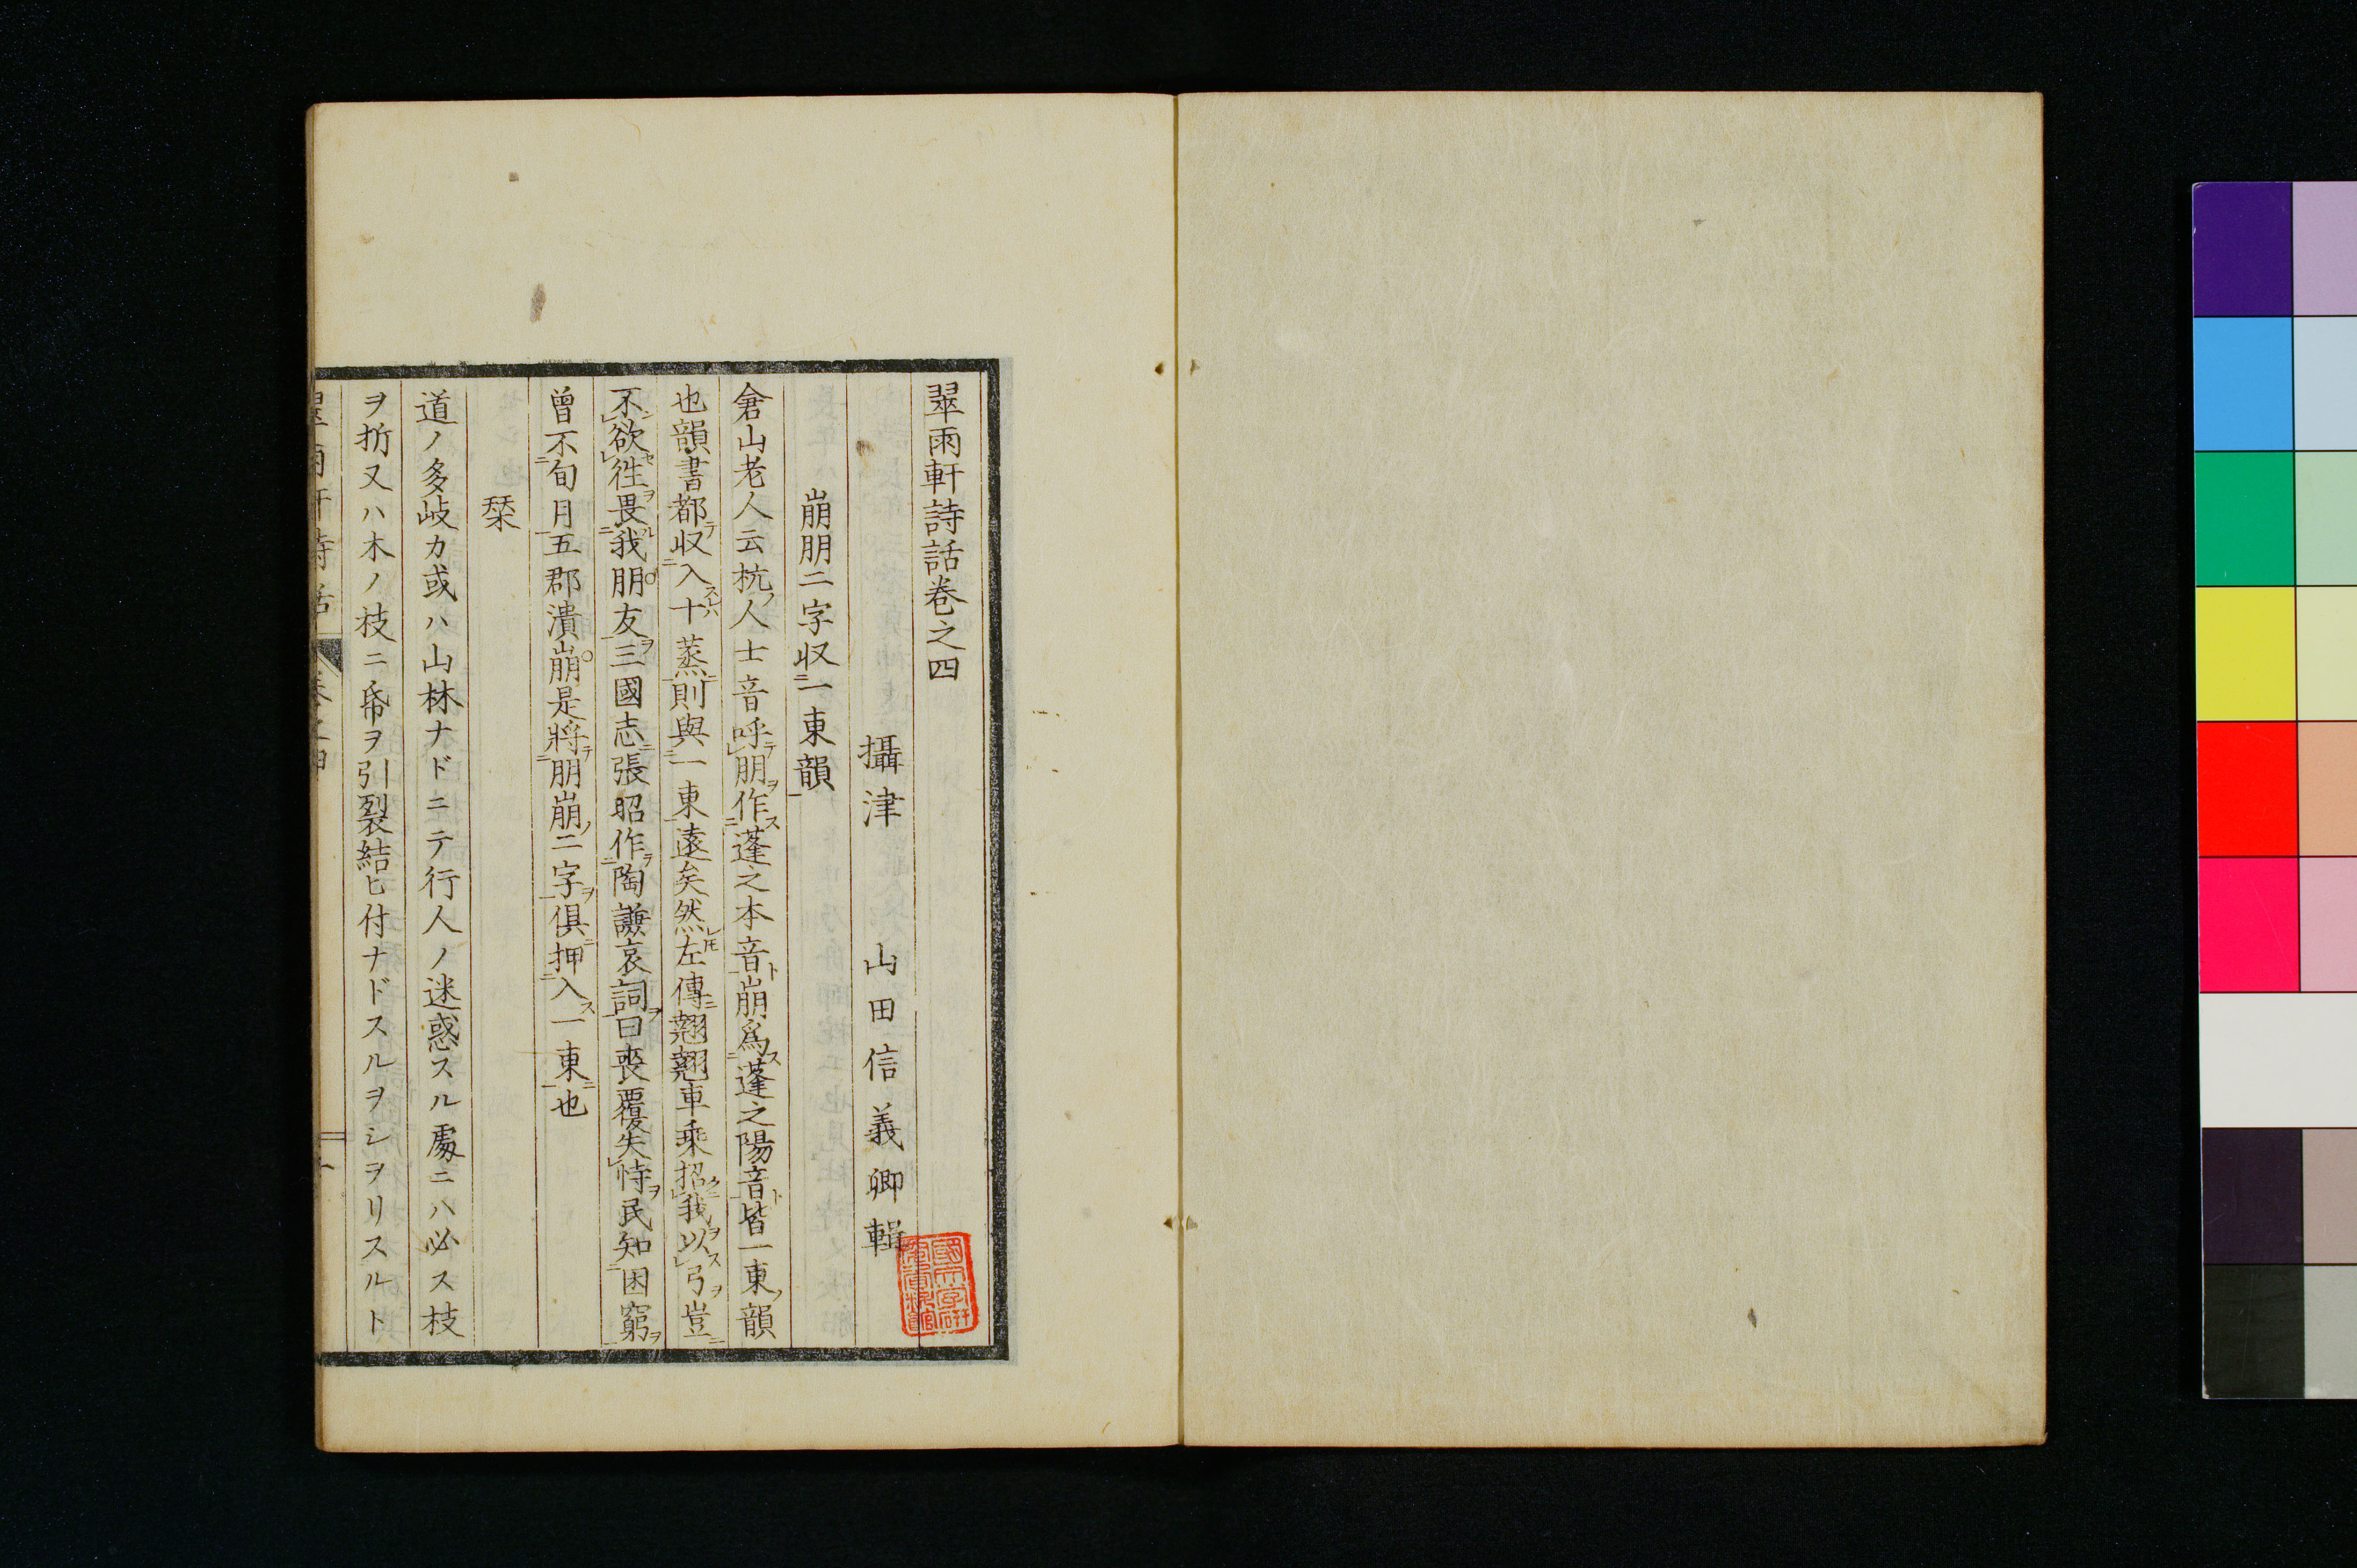 翠雨軒詩話卷之四
攝津 山田信義卿輯
崩朋二字収一東韻
倉山老人云杭人士音呼朋作蓬之本音崩爲蓬之陽音皆一東韻
也韻書都収入十蒸則與一東遠矣然左傳翹翹車乘招我以弓豈
不欲往畏我朋友三國志張昭作陶謙哀詞曰喪覆失恃民知困窮
曾不旬月五郡潰崩是將朋崩二字俱押入一東也
栞
道ノ多岐カ或ハ山林ナドニテ行人ノ迷惑スル處ニハ必ス枝
ヲ折又ハ木ノ枝ニ帋ヲ引裂結ヒ付ナドスルヲシヲリスルト
翠雨軒詩話 卷之四